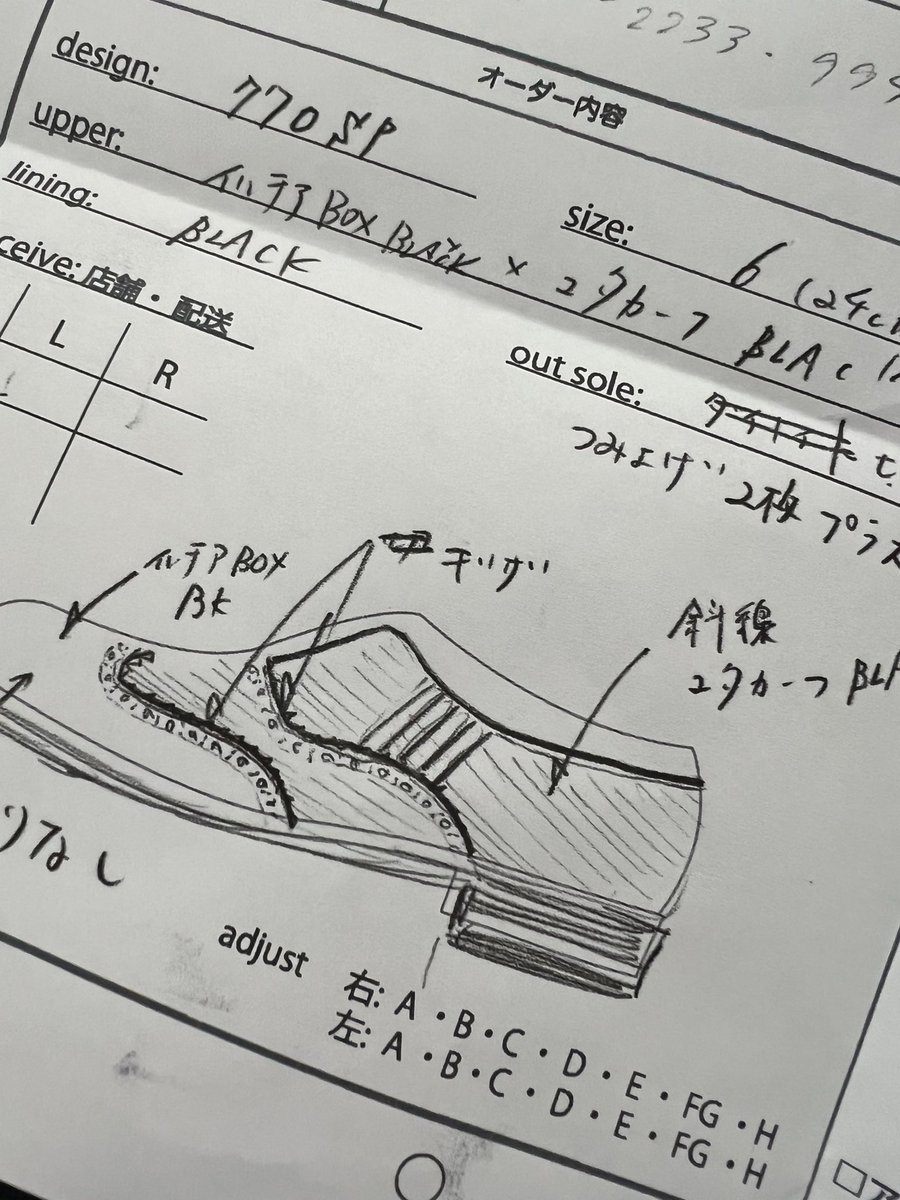 オーダー内容
design: 770 SP
upper: イルチア BOX BLACK × ユタカーフ BLAC
size: 6 (24c
lining: BLACK
ceive: 店舗・配送
L R
out sole: ダイナイト
つみよげ 2枚 プラス
イルチア BOX
BK
ギザギザ
斜線
ユタカーフ BLA
りなし
adjust 右: A・B・C・D・E・FG・H
左: A・B・C・D・E・FG・H